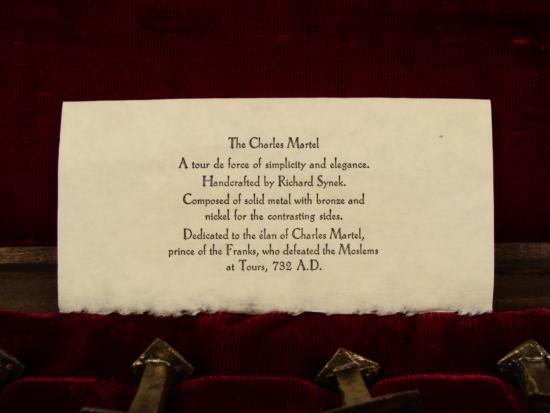 The Charles Martel
A tour de force of simplicity and elegance.
Handcrafted by Richard Synek.
Composed of solid metal with bronze and
nickel for the contrasting sides.
Dedicated to the élan of Charles Martel,
prince of the Franks, who defeated the Moslems
at Tours, 732 A.D.